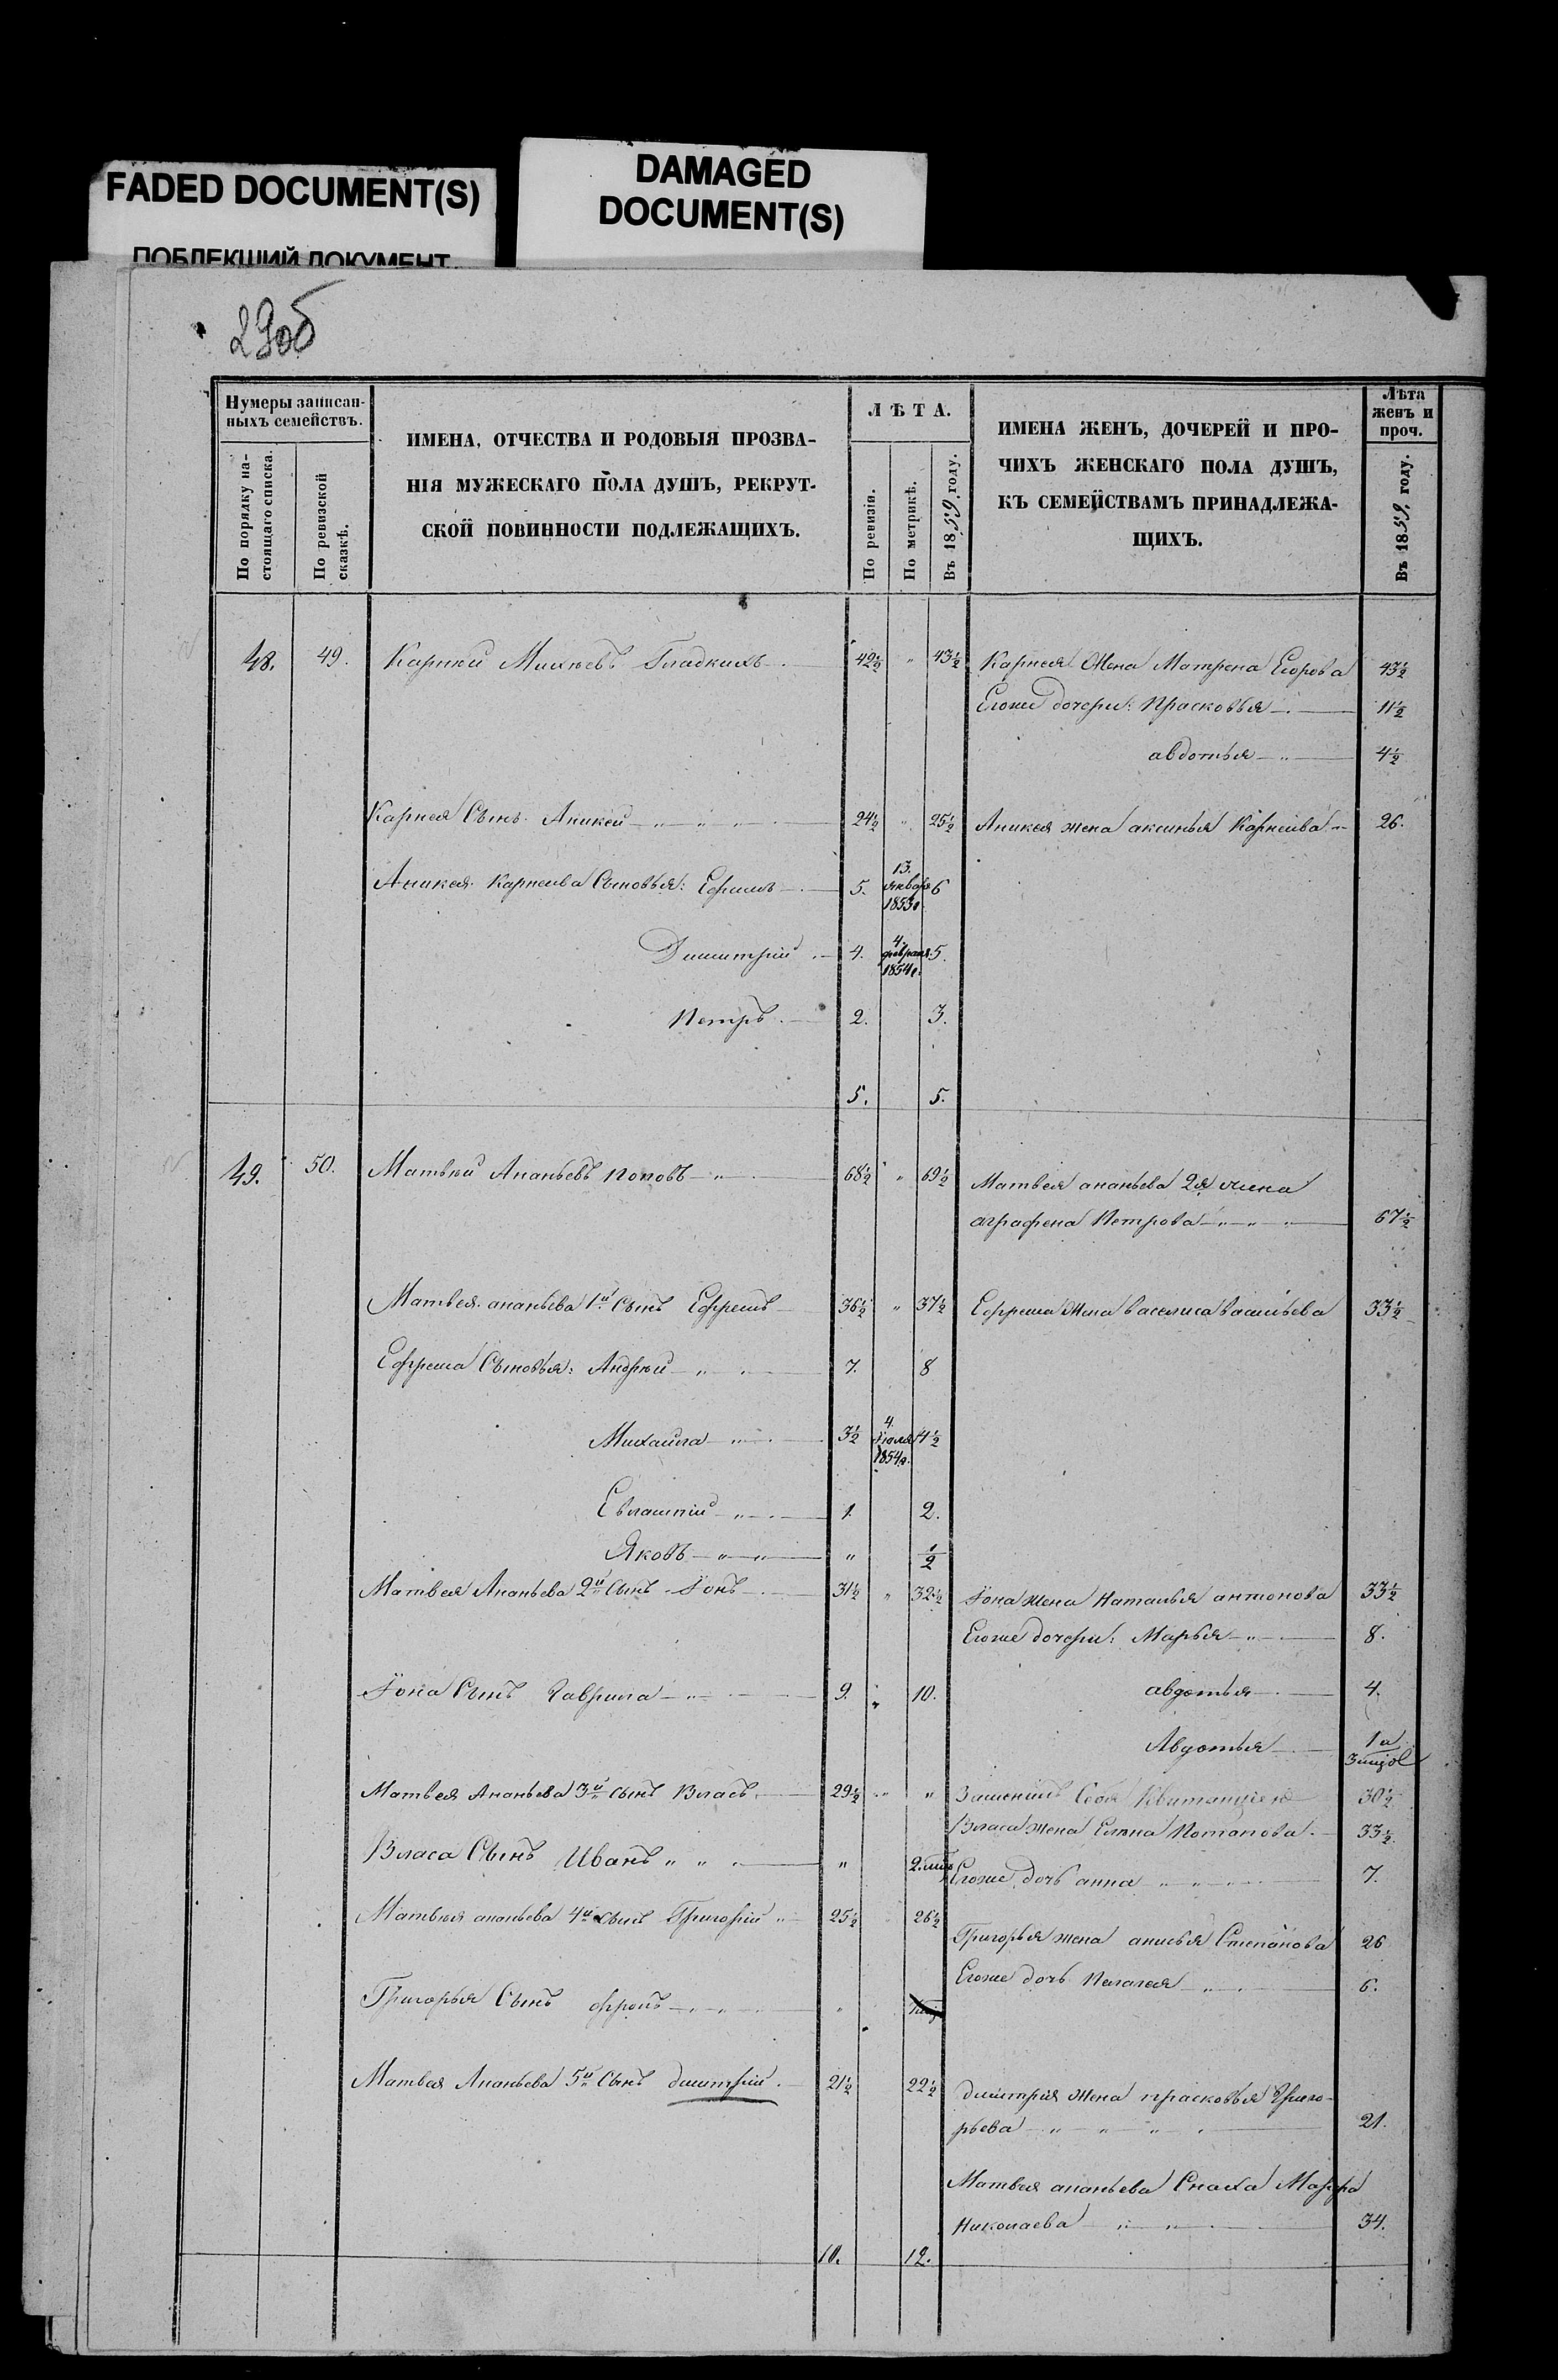 FADED DOCUMENT(S)
ПОБЛЕКШИЙ ДОКУМЕНТ
DAMAGED
DOCUMENT(S)
29об
Нумеры записан-
ныхъ семействъ.
По порядку на-
стоящаго списка.
По ревизской
сказкѣ.
ИМЕНА, ОТЧЕСТВА И РОДОВЫЯ ПРОЗВА-
НІЯ МУЖЕСКАГО ПОЛА ДУШЪ, РЕКРУТ-
СКОЙ ПОВИННОСТИ ПОДЛЕЖАЩИХЪ.
ЛѢТА.
По ревизіи.
По метрикѣ.
Въ 1859 году.
ИМЕНА ЖЕНЪ, ДОЧЕРЕЙ И ПРО-
ЧИХЪ ЖЕНСКАГО ПОЛА ДУШЪ,
КЪ СЕМЕЙСТВАМЪ ПРИНАДЛЕЖА-
ЩИХЪ.
Лѣта
женъ и
проч.
Въ 1859 году.
48. 49. Карнѣй Михѣевъ Гладкихъ 42½ " 43½ Карнея Жена Матрена Егорова 43½
Егоже дочери: Прасковья 11½
авдотья 4½
Карнея Сынъ Аникей 24½ " 25½ Аникея жена аксинья Корнеева 26.
Аникея Карнеева Сыновья: Ефимъ 5. 13. января 1853г 6
Димитрій 4. 4. февраля 1854г. 5.
Петръ 2. 3.
5. 5.
49. 50. Матвѣй Ананьевъ Поповъ 68½ " 69½ Матвея ананьева 2я жена
аграфена Петрова 67½
Матвея ананьева 1й Сынъ Ефремъ 36½ " 37½ Ефрема Жена василиса васильева 33½
Ефрема Сыновья: Андрѣй 7. 8
Михаила 3½ 4. Іюля 1854г. 4½
Евлампій 1. 2.
Яковъ " ½
Матвея Ананьева 2й Сынъ Іонъ 31½ " 32½ Іона жена Наталья антонова 33½
Егоже дочери: Марья 8.
Іона Сынъ Гаврила 9. " 10. авдотья 4.
Авдотья 1 и
Матвея Ананьева 3й сынъ Власъ 29½ " " Заменилъ Себя Квитанціею 30½
Власа жена Елена Потапова 33½
Власа Сынъ Иванъ " 2. Егоже дочь анна 7.
Матвея ананьева 4й сынъ Григорій 25½ 26½
Григорья жена анисья Степанова 26
Егоже дочь Пелагея 6.
Григорья Сынъ фролъ "
Матвея Ананьева 5й Сынъ димитрій 21½ 22½ димитрія Жена прасковья Григо-
рьева 21.
Матвея ананьева Сноха Мавра
Николаева 34.
10. 12.